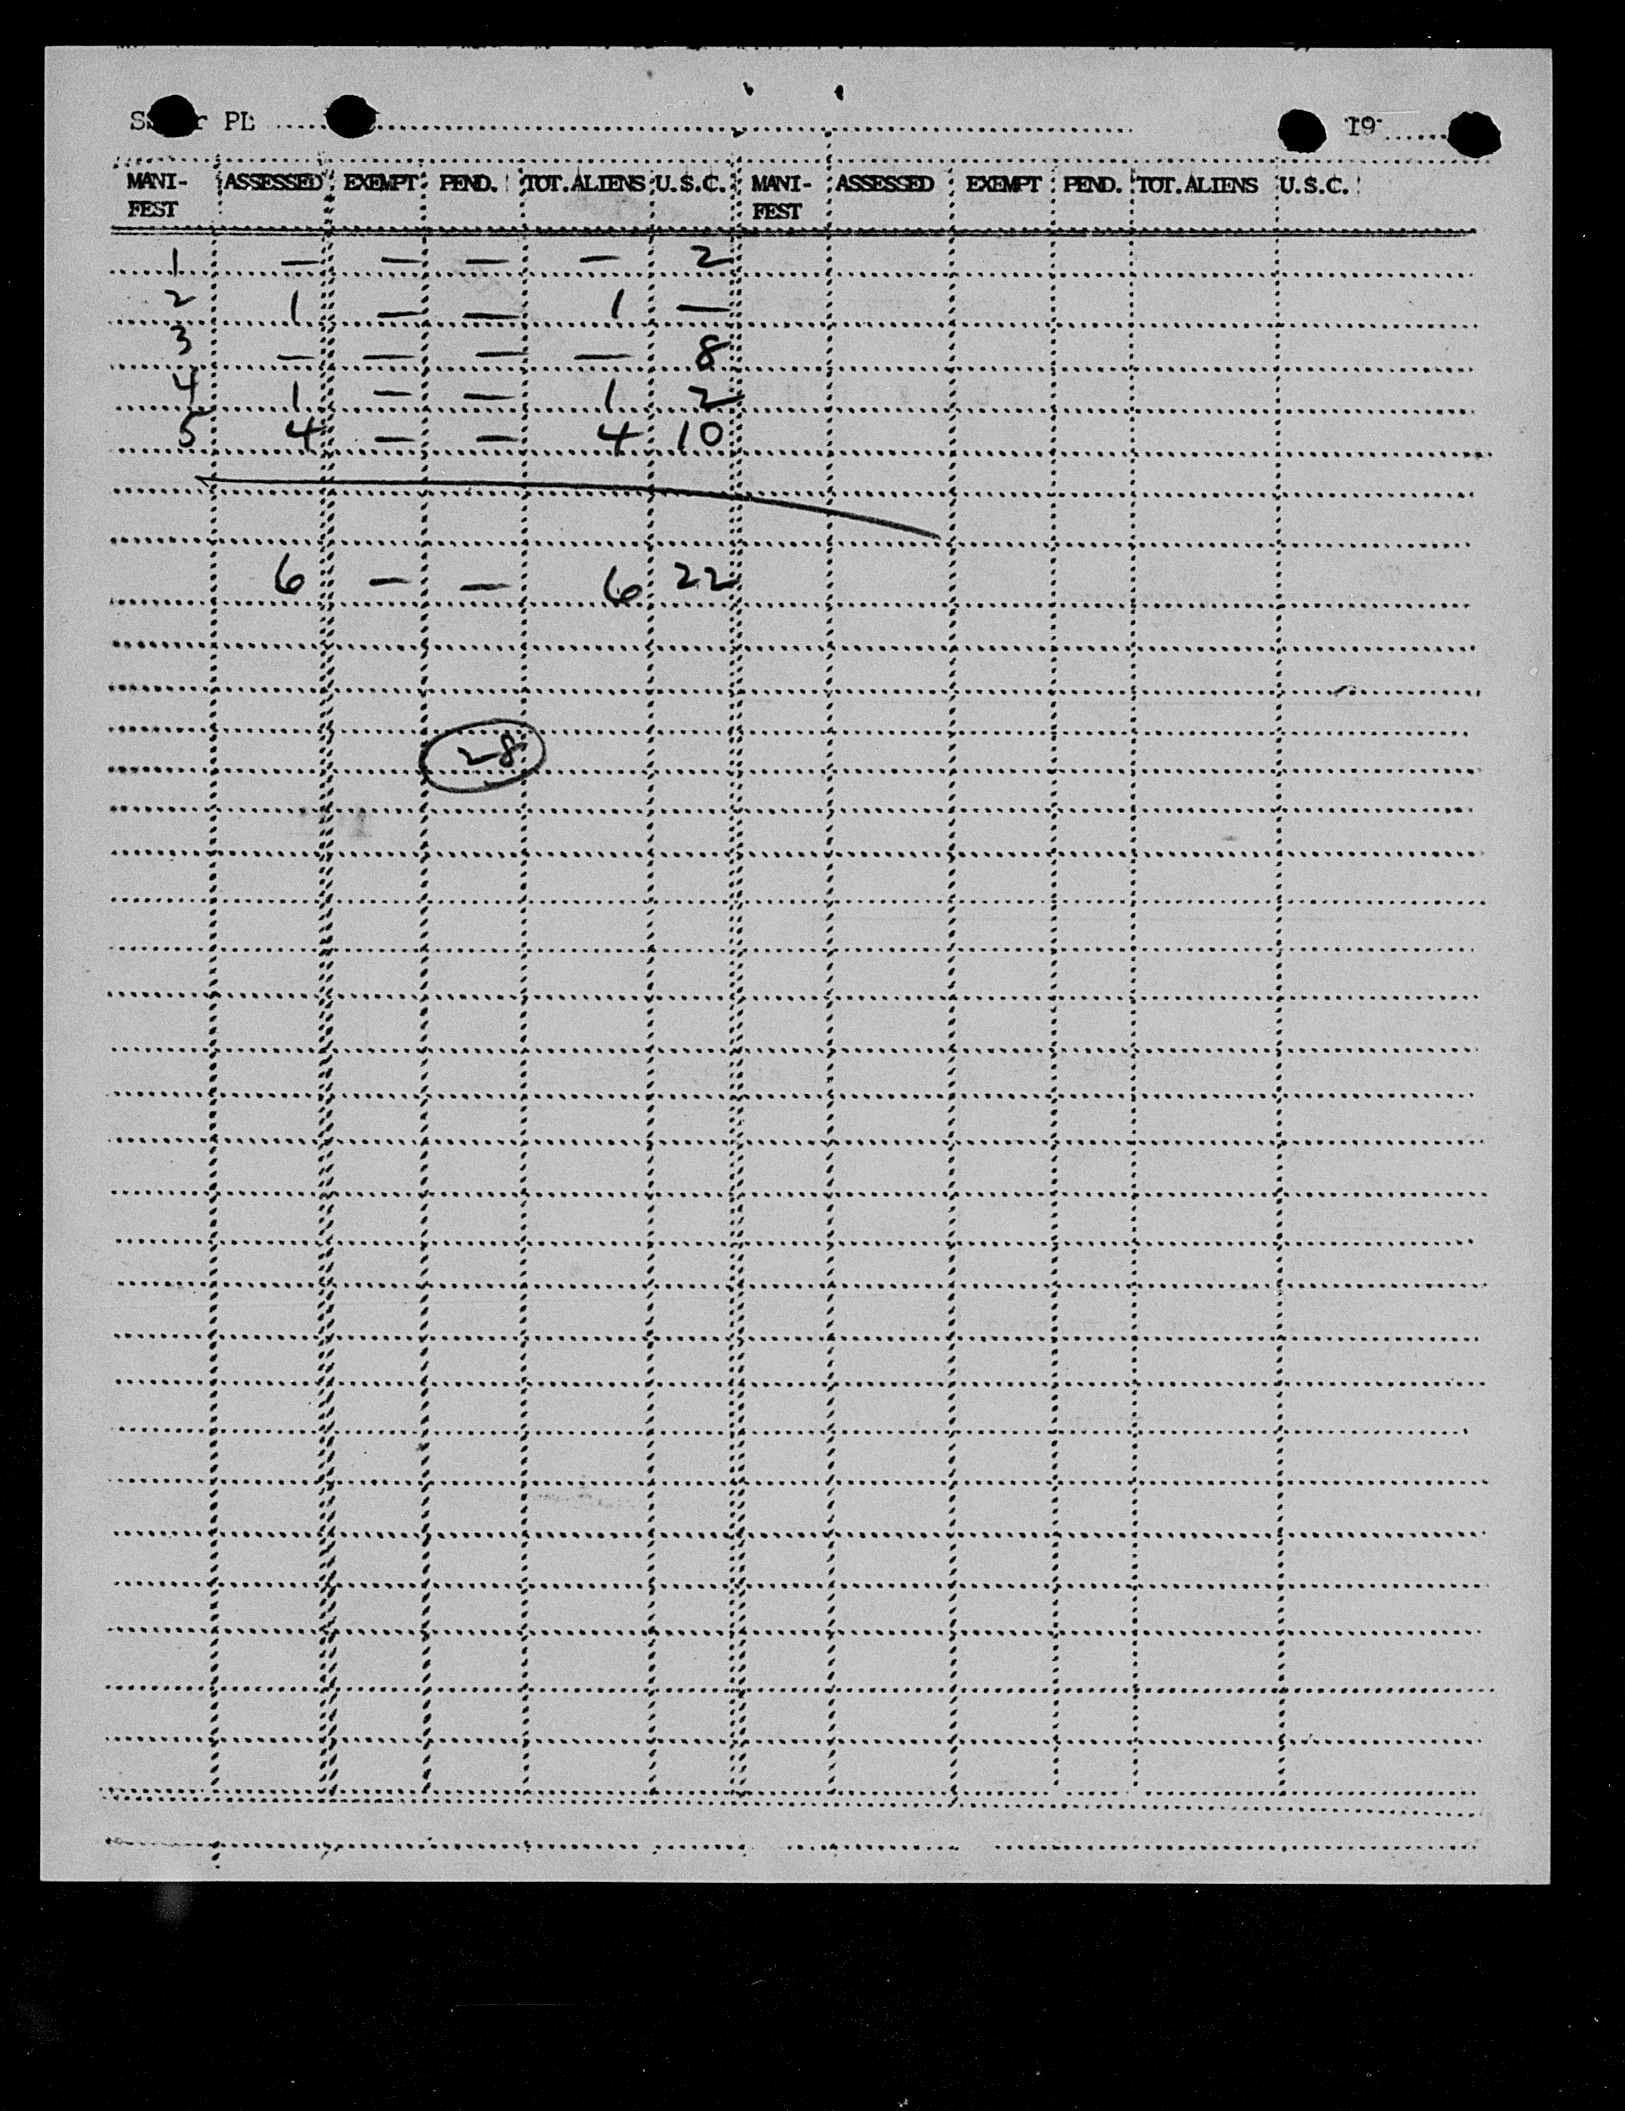 PL 19
MANI-FEST ASSESSED EXEMPT PEND. TOT.ALIENS U.S.C. MANI-FEST ASSESSED EXEMPT PEND. TOT.ALIENS U.S.C.
1 — — — — 2
2 1 — — 1 —
3 — — — — 8
4 1 — — 1 2
5 4 — — 4 10
6 — — 6 22
28